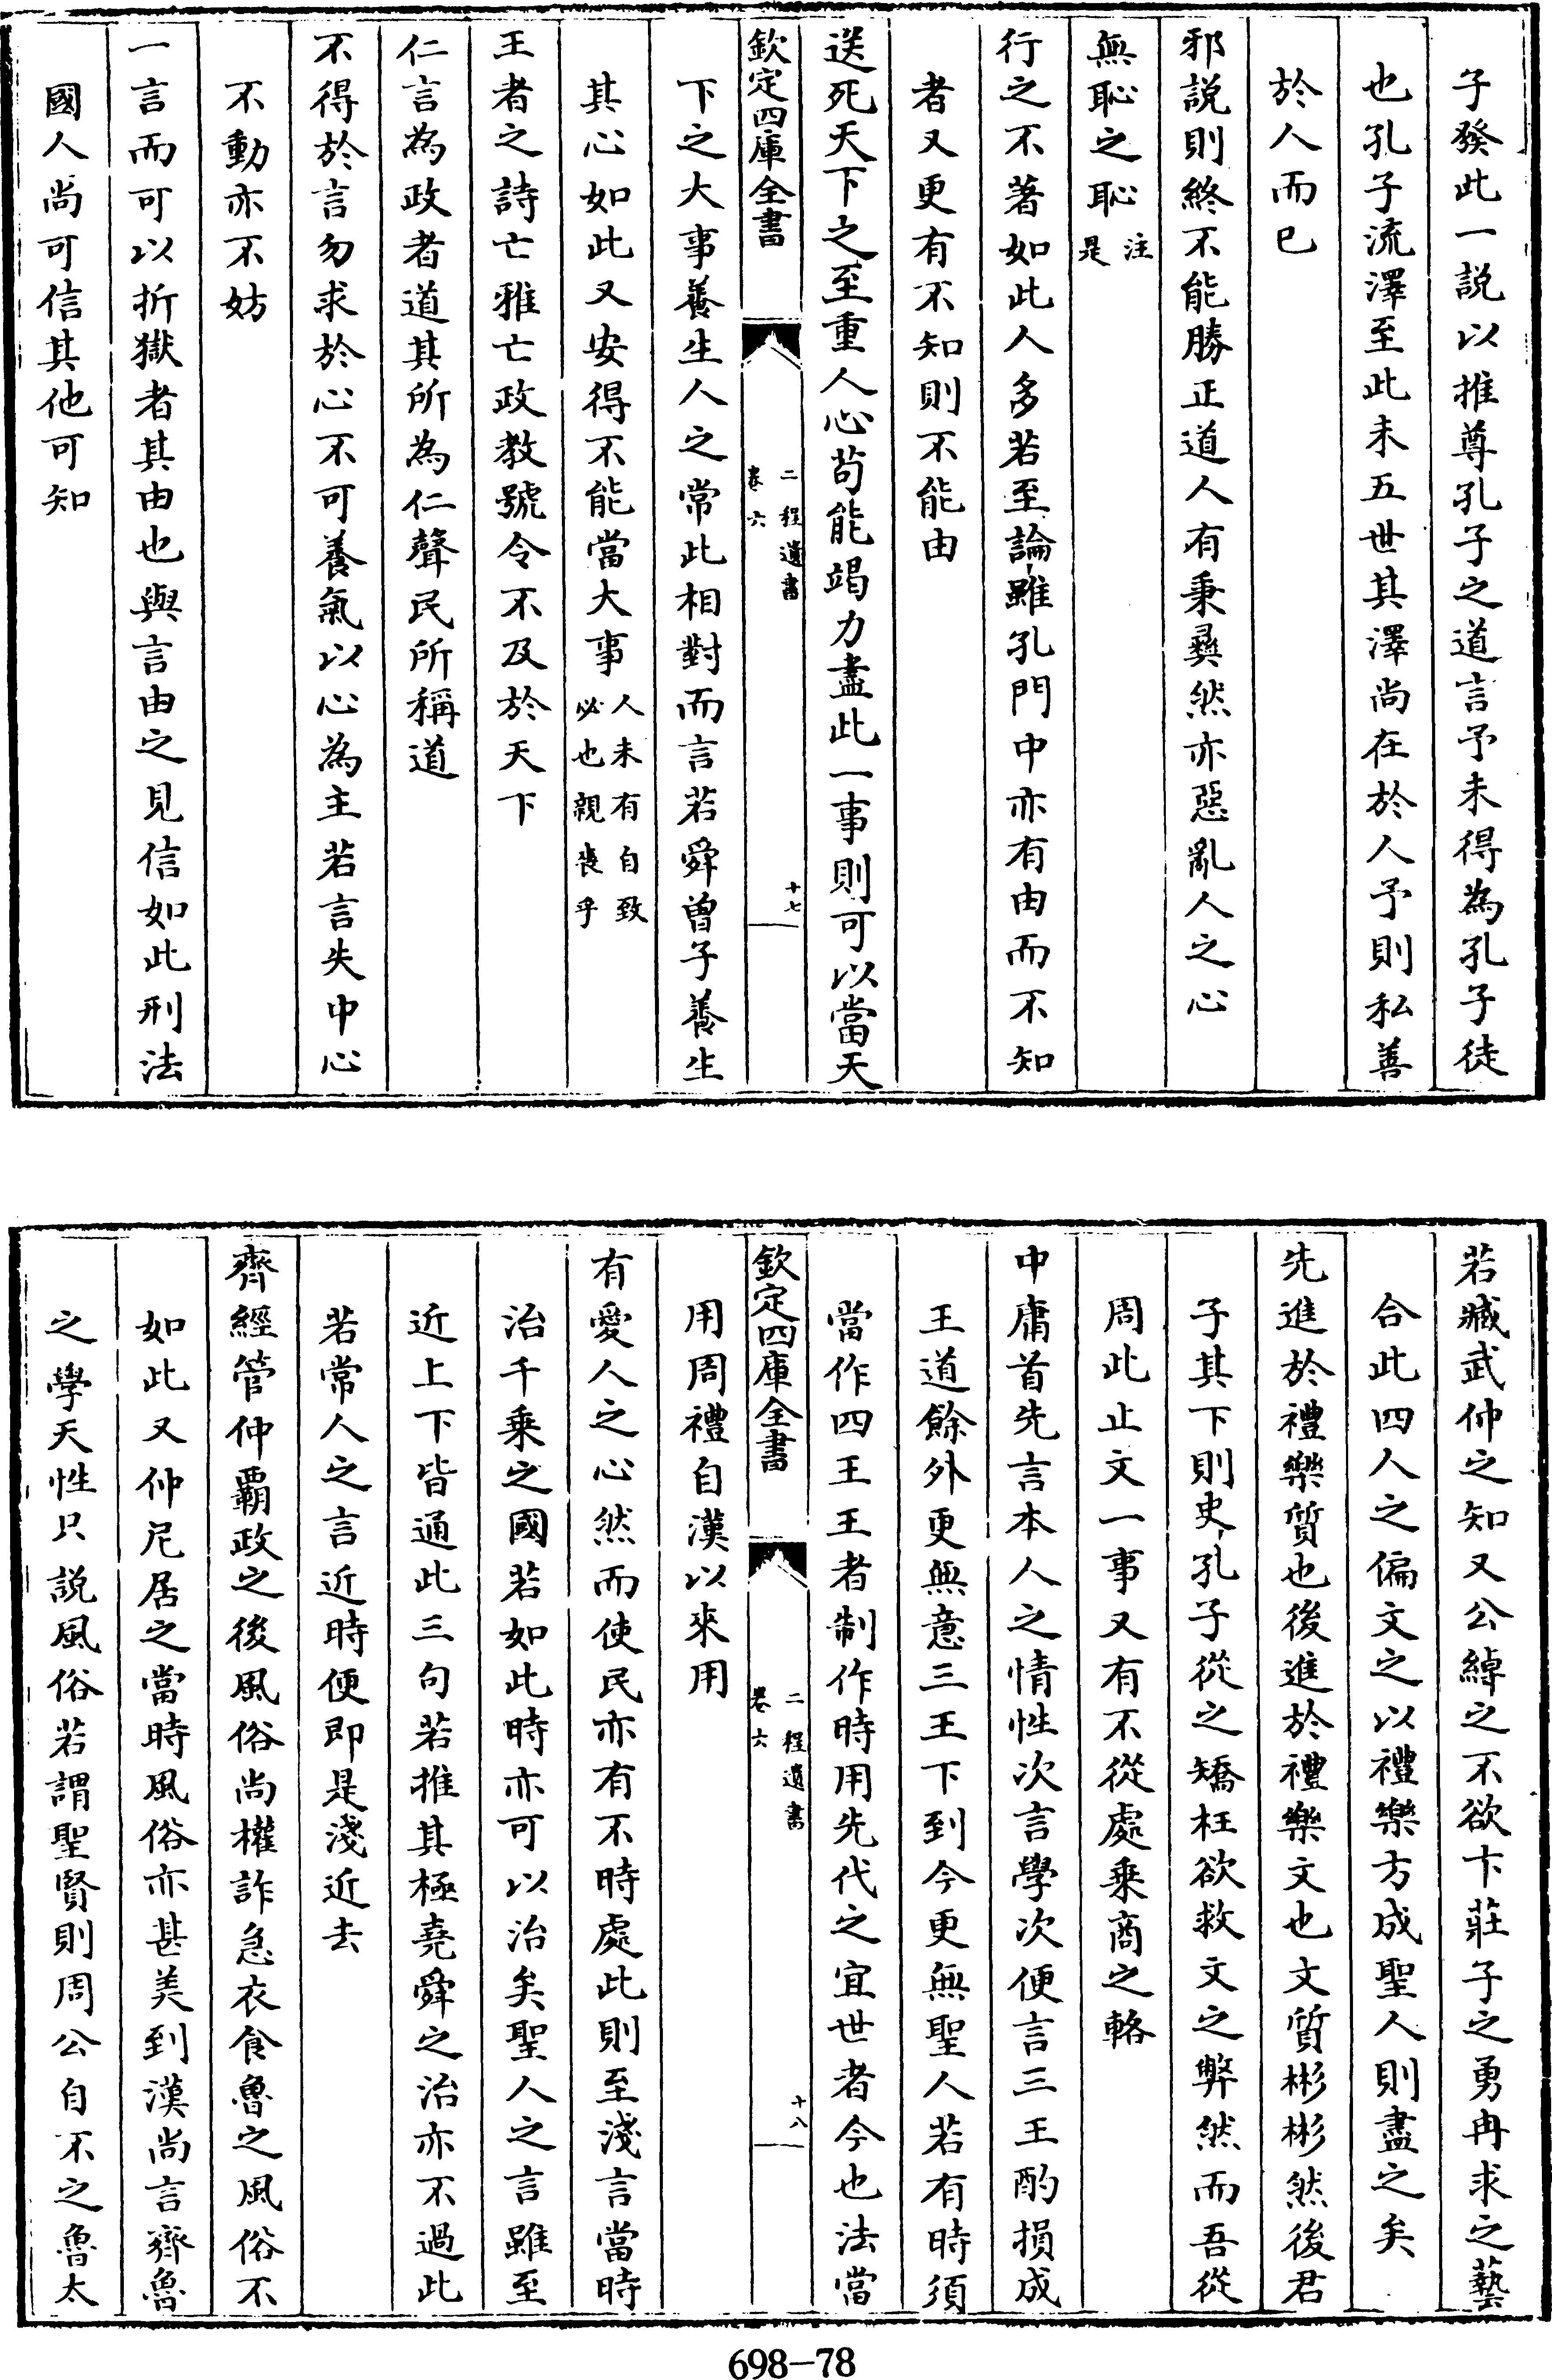 子發此一説以推尊孔子之道言予未得為孔子徒
也孔子流澤至此未五世其澤尚在於人予則私善
於人而已
邪説則終不能勝正道人有秉彛然亦惡亂人之心
無恥之恥注是
行之不著如此人多若至論雖孔門中亦有由而不知
者又更有不知則不能由
送死天下之至重人心苟能竭力盡此一事則可以當天
欽定四庫全書
二程遺書
卷六
十七
下之大事養生人之常此相對而言若舜曾子養生
其心如此又安得不能當大事人未有自致必也親喪乎
王者之詩亡雅亡政教號令不及於天下
仁言為政者道其所為仁聲民所稱道
不得於言勿求於心不可養氣以心為主若言失中心
不動亦不妨
一言而可以折獄者其由也與言由之見信如此刑法
國人尚可信其他可知
若臧武仲之知又公綽之不欲卞莊子之勇冉求之藝
合此四人之偏文之以禮樂方成聖人則盡之矣
先進於禮樂質也後進於禮樂文也文質彬彬然後君
子其下則史孔子從之矯枉欲救文之弊然而吾從
周此止文一事又有不從處乘商之輅
中庸首先言本人之情性次言學次便言三王酌損成
王道餘外更無意三王下到今更無聖人若有時須
當作四王王者制作時用先代之宜世者今也法當
欽定四庫全書
二程遺書
卷六
十八
用周禮自漢以來用
有愛人之心然而使民亦有不時處此則至淺言當時
治千乘之國若如此時亦可以治矣聖人之言雖至
近上下皆通此三句若推其極堯舜之治亦不過此
若常人之言近時便即是淺近去
齊經管仲霸政之後風俗尚權詐急衣食魯之風俗不
如此又仲尼居之當時風俗亦甚美到漢尚言齊魯
之學天性只説風俗若謂聖賢則周公自不之魯太
698-78